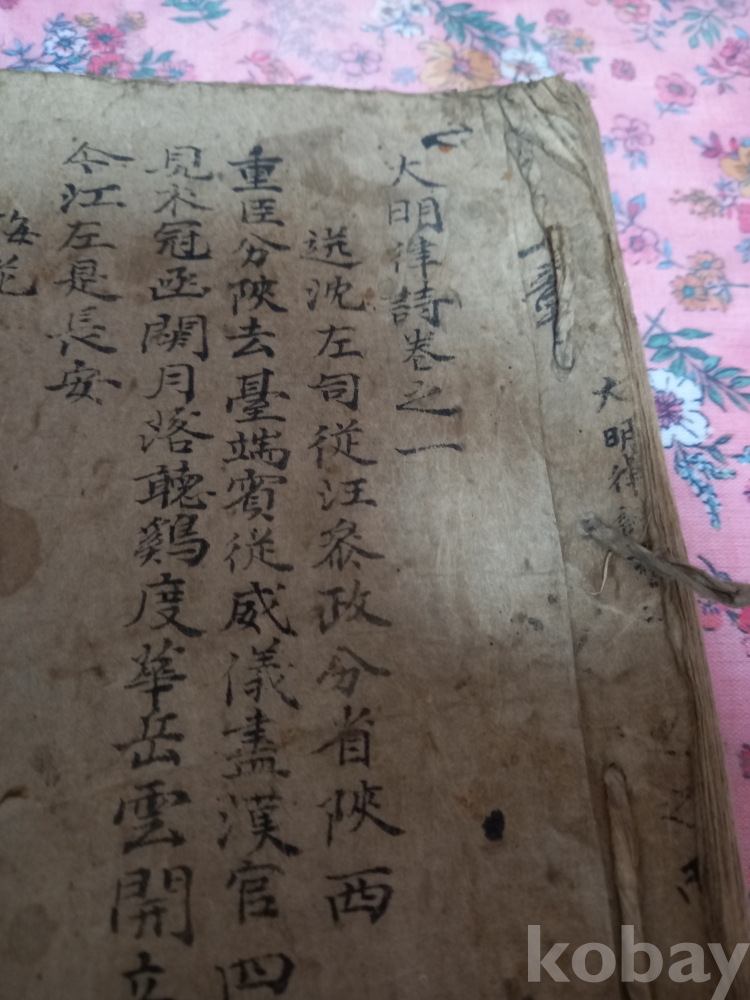 章
大明律
大明律詩卷之一
送沈左司從汪叅政分省陝西
重臣分陝去臺端賓從威儀盡漢官四
見衣冠凾關月落聽鷄度華岳雲開立
今江左是長安
梅花
kobay